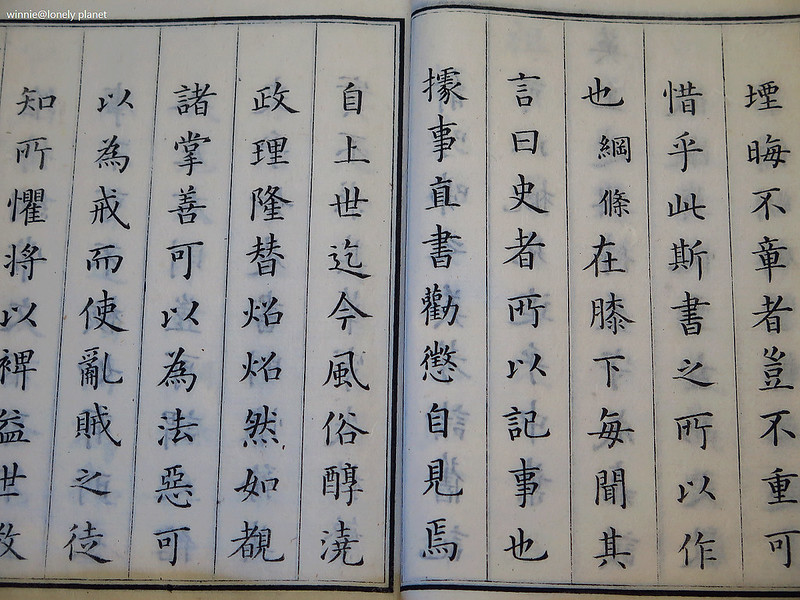 winnie@lonely planet
堙晦不章者豈不重可
惜乎此斯書之所以作
也綱條在膝下每聞其
言曰史者所以記事也
據事直書勸懲自見焉
自上世迄今風俗醇澆
政理隆替炤炤然如覩
諸掌善可以為法惡可
以為戒而使亂賊之徒
知所懼將以裨益世教